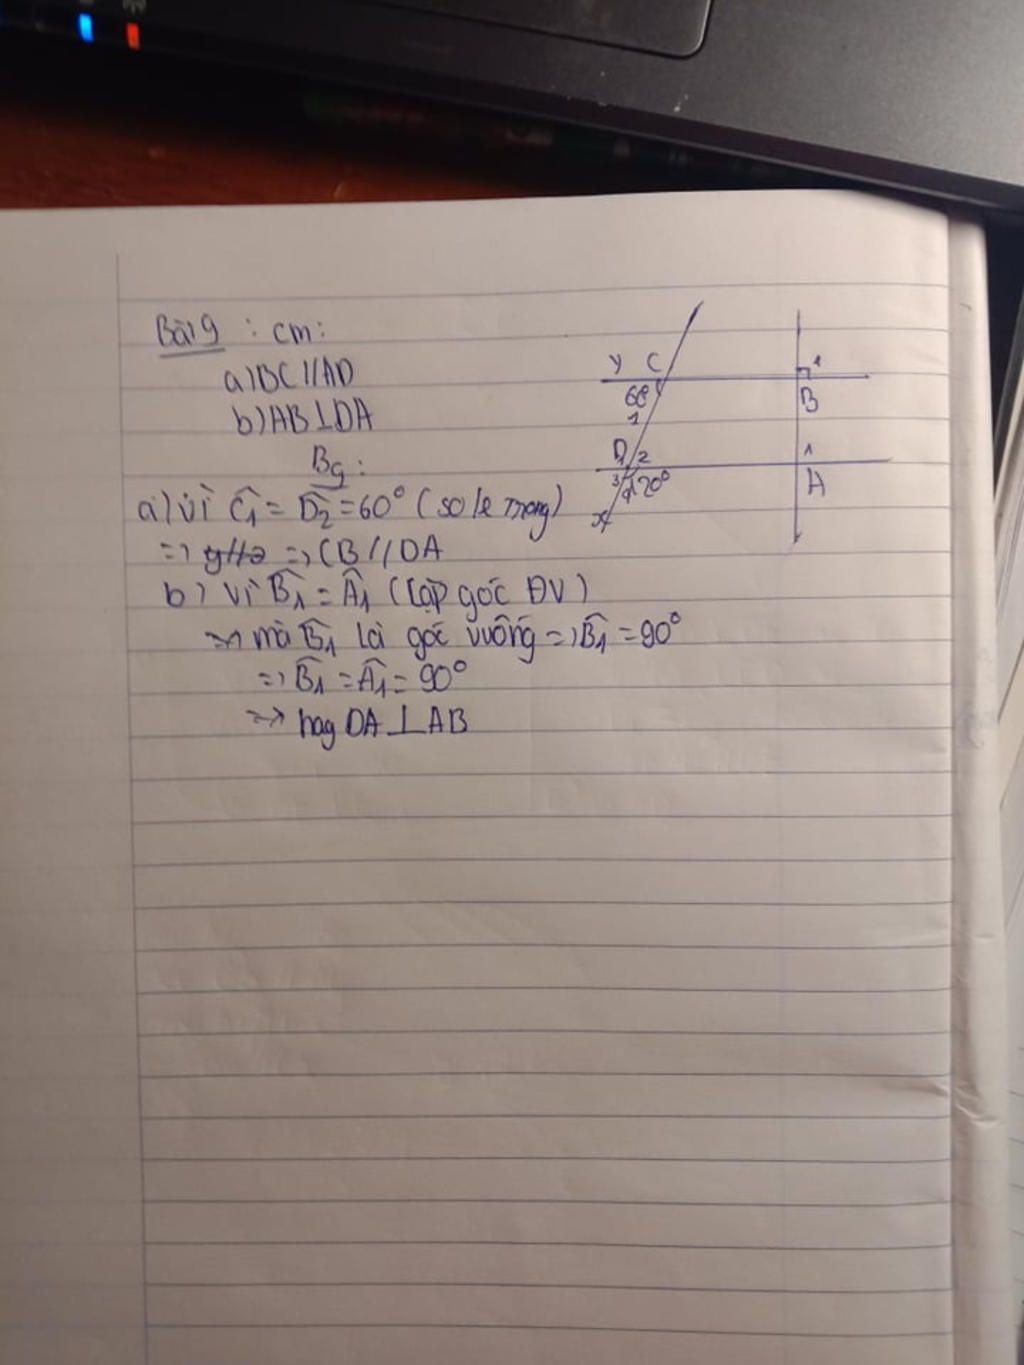 Bài 9 : cm:
a) BC // AD
b) AB ⊥ DA
Bg :
a) Vì Ĉ1 = D̂2 = 60° (so le trong)
=> => CB // DA
b) Vì B̂1 = Â1 (cặp góc ĐV)
=> mà B̂1 là góc vuông => B̂1 = 90°
=> B̂1 = Â1 = 90°
=> hay DA ⊥ AB
y C 1
60° B
1
D 2 1
3 120° A
x